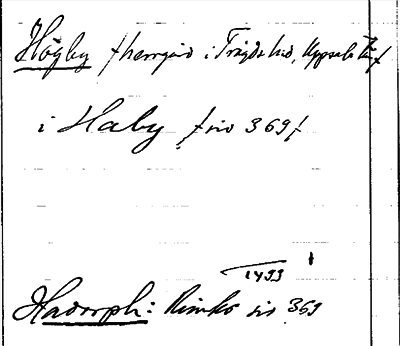 Högby /herrgård i Trögds hd, Uppsala län/
i Haby /sid 369/
1493
Hadorph: Rimkr sid 369